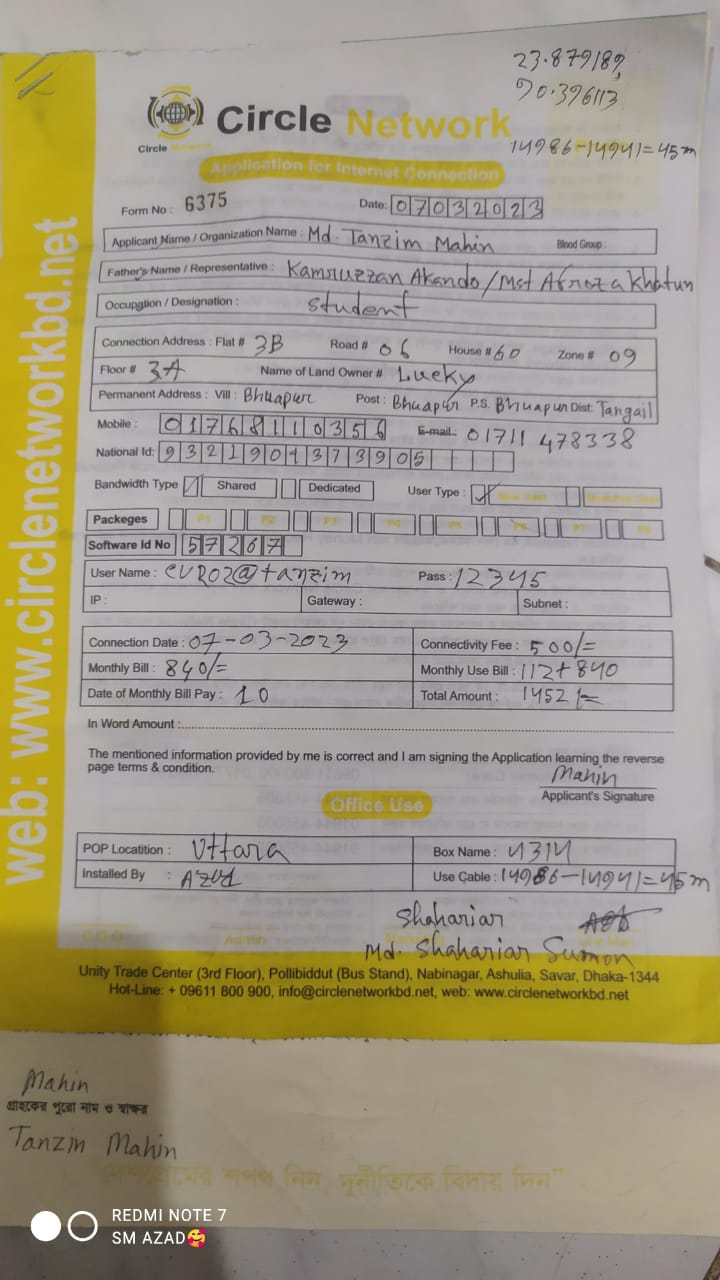 23.879189,
90.396113
14986-14941=45m
Circle Network
Circle Network
Application for Internet Connection
Form No : 6375
Date: 07032023
Applicant Name / Organization Name : Md. Tanzim Mahin Blood Group :
Father's Name / Representative : Kamruzzan Akando/Mst Afroza Khatun
Occupation / Designation : Student
Connection Address : Flat # 3B Road # 06 House # 60 Zone # 09
Floor # 3A Name of Land Owner # Lucky
Permanent Address : Vill : Bhuapur Post : Bhuapur P.S. Bhuapur Dist: Tangail
Mobile : 01768110356 E-mail : 01711 478338
National Id: 9321904373905
Bandwidth Type Shared Dedicated User Type : New User
Packeges P1 P2 P3 P4 P5 P6 P7 P8
Software Id No 57267
User Name : CVR02@tanzim Pass : 12345
IP : Gateway : Subnet :
Connection Date : 07-03-2023 Connectivity Fee : 500/=
Monthly Bill : 840/= Monthly Use Bill : 112+840
Date of Monthly Bill Pay : 10 Total Amount : 1452/=
In Word Amount :
The mentioned information provided by me is correct and I am signing the Application learning the reverse
page terms & condition.
Mahin
Applicant's Signature
Office Use
POP Locatition : Uttara Box Name : 4314
Installed By : Use Cable : 14986-14941=45m
Shahariar
Md. Shahariar Sumon
C O O Admin
Unity Trade Center (3rd Floor), Pollibiddut (Bus Stand), Nabinagar, Ashulia, Savar, Dhaka-1344
Hot-Line: + 09611 800 900, info@circlenetworkbd.net, web: www.circlenetworkbd.net
web: www.circlenetworkbd.net
Mahin
গ্রাহকের পুরো নাম ও স্বাক্ষর
Tanzim Mahin
"দেশপ্রেমের শপথ নিন, দুর্নীতিকে বিদায় দিন"
REDMI NOTE 7
SM AZAD🥰